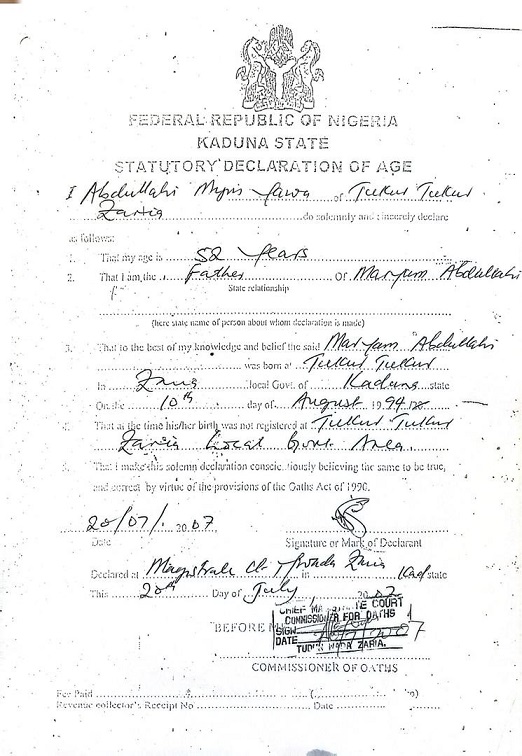 FEDERAL REPUBLIC OF NIGERIA
KADUNA STATE
STATUTORY DECLARATION OF AGE
I Abdullahi Yawa of Tukur Tukur
Zaria do solemnly and sincerely declare
as follows:
1. That my age is 52 Years
2. That I am the Father Of Maryam Abdullahi
State relationship
(here state name of person about whom declaration is made)
3. That to the best of my knowledge and belief the said Maryam Abdullahi
was born at Tukur Tukur
In Zaria local Govt. of Kaduna state
On the 10th day of August 1994
4. That at the time his/her birth was not registered at Tukur Tukur
Zaria Local Govt Area.
5. That I make this solemn declaration conscientiously believing the same to be true,
and correct by virtue of the provisions of the Oaths Act of 1990.
20/07/. 2007
Date Signature or Mark of Declarant
Declared at Magistrate Ct Zaria in Kad state
This 20th Day of July 2007
BEFORE
CHIEF MAGISTRATE COURT
COMMISSIONER FOR OATHS
SIGN
DATE 2007
TUDUN WADA ZARIA.
COMMISSIONER OF OATHS
Fee Paid
Revenue collector's Receipt No Date